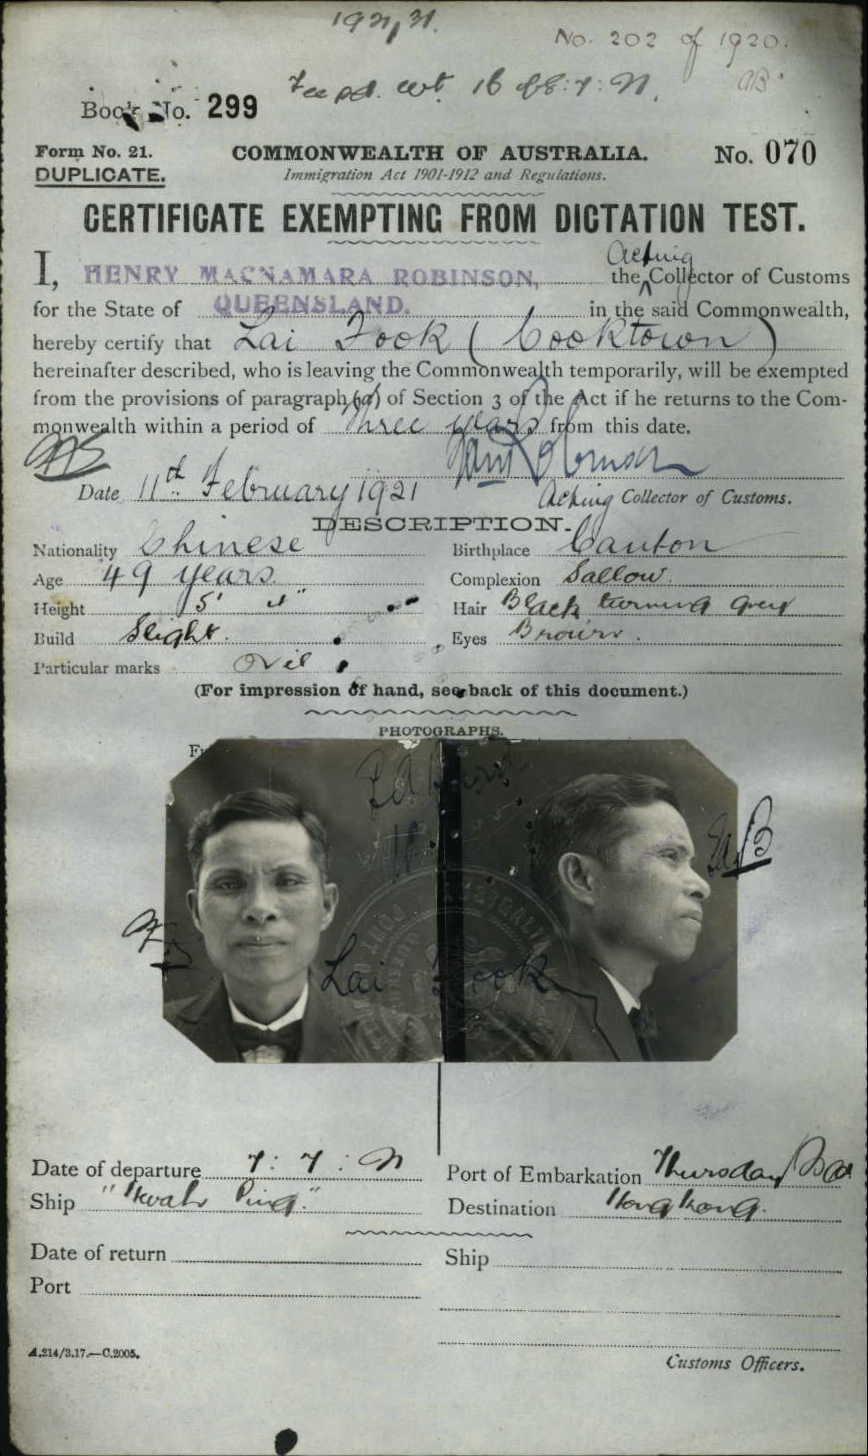 1921/21.
No. 202 of 1920.
Fee pd.
Book No. 299
Form No. 21. COMMONWEALTH OF AUSTRALIA. No. 070
DUPLICATE. Immigration Act 1901-1912 and Regulations.
CERTIFICATE EXEMPTING FROM DICTATION TEST.
Acting
I, HENRY MACNAMARA ROBINSON, the Collector of Customs
for the State of QUEENSLAND. in the said Commonwealth,
hereby certify that Lai Fook (Cooktown)
hereinafter described, who is leaving the Commonwealth temporarily, will be exempted
from the provisions of paragraph (a) of Section 3 of the Act if he returns to the Com-
monwealth within a period of three years from this date.
Date 11th February 1921 Acting Collector of Customs.
DESCRIPTION.
Nationality Chinese Birthplace Canton
Age 49 years. Complexion Sallow.
Height 5' 4" Hair Black turning grey
Build Slight. Eyes Brown.
Particular marks Nil
(For impression of hand, see back of this document.)
PHOTOGRAPHS.
Lai Fook
Date of departure 7:7:21 Port of Embarkation Thursday Isd
Ship "Hwah Ping." Destination Hong Kong.
Date of return Ship
Port
A.214/3.17.—C.2005.
Customs Officers.